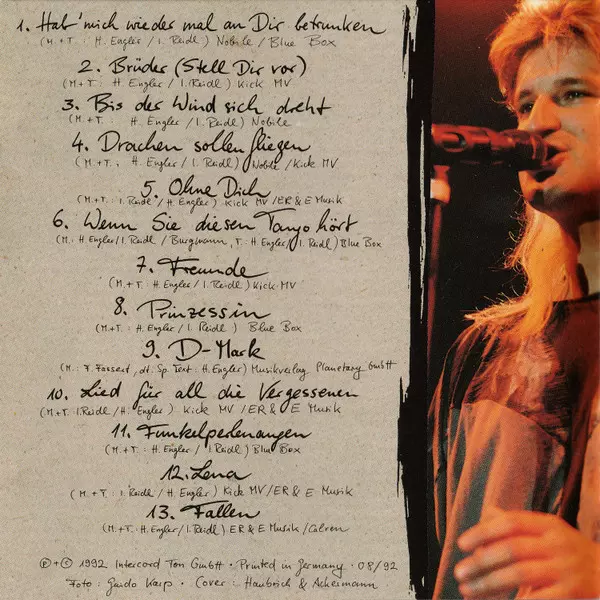 1. Hab' mich wieder mal an Dir betrunken
(M.+T.: H. Engler / I. Reidl) Nobile / Blue Box
2. Brüder (Stell Dir vor)
(M.+T.: H. Engler / I. Reidl) Kick MV
3. Bis der Wind sich dreht
(M.+T.: H. Engler / I. Reidl) Nobile
4. Drachen sollen fliegen
(M.+T.: H. Engler / I. Reidl) Nobile / Kick MV
5. Ohne Dich
(M.+T.: I. Reidl / H. Engler) Kick MV / ER & E Musik
6. Wenn Sie diesen Tango hört
(M.: H. Engler / I. Reidl / Burgmann, T.: H. Engler / I. Reidl) Blue Box
7. Freunde
(M.+T.: H. Engler / I. Reidl) Kick MV
8. Prinzessin
(M.+T.: H. Engler / I. Reidl) Blue Box
9. D-Mark
(M.: F. Fassert, dt. Sp. Text: H. Engler) Musikverlag Planetary GmbH
10. Lied für all die Vergessenen
(M.+T.: I. Reidl / H. Engler) Kick MV / ER & E Musik
11. Funkelperlenaugen
(M.+T.: H. Engler / I. Reidl) Blue Box
12. Lena
(M.+T.: I. Reidl / H. Engler) Kick MV / ER & E Musik
13. Fallen
(M.+T.: H. Engler / I. Reidl) ER & E Musik /
℗+© 1992 Intercord Ton GmbH · Printed in Germany · 08/92
Foto: Guido Karp · Cover: Haubrich & Ackermann